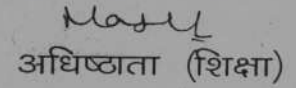 अधिष्ठाता (शिक्षा)